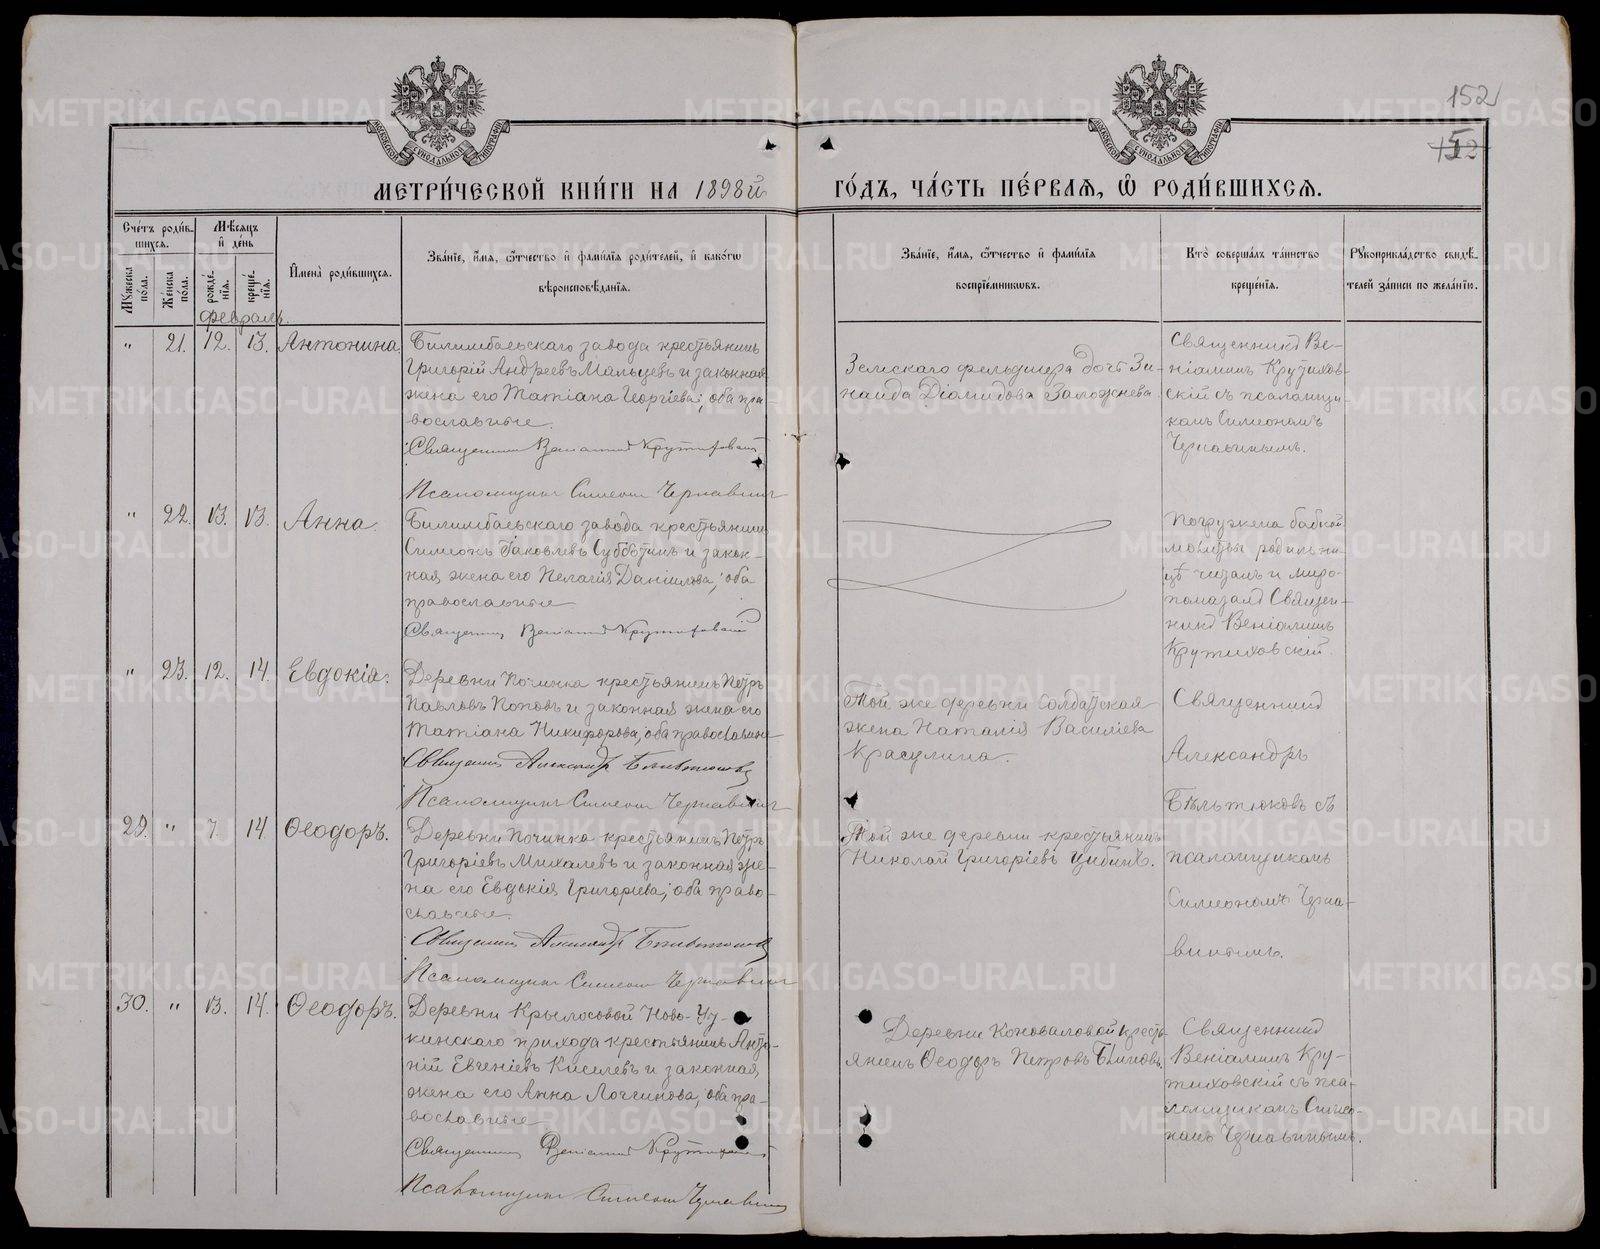 152
МЕТРИ́ЧЕСКОЙ КНИ́ГИ НА 1898й
ГО́ДЪ, ЧА́СТЬ ПЕ́РВАЯ, Ѡ РОДИ́ВШИХСЯ.
Сче́тъ роди́в-
шихся.
Мѣ́сяцъ
и҆ де́нь
Мꙋ́жеска по́ла.
Же́нска по́ла.
рожде́-
нїя.
креще́-
нїя.
И҆мена̀ роди́вшихся.
Зва́нїе, и҆́мя, ѻ҆́тчество и҆ фами́лїя роди́телей, и҆ како́гѡ
вѣроисповѣ́данїя.
Зва́нїе, и҆́мя, ѻ҆́тчество и҆ фами́лїя
воспрїе́мникѡвъ.
Кто̀ соверша́лъ та́инство
креще́нїя.
Рꙋкоприкла́дство свидѣ́-
телей за́писи по жела́нїю.
Февраль.
" 21. 12. 13. Антонина.
Билимбаевскаго завода крестьянинъ
Григорій Андреевъ Мальцевъ и законная
жена его Татіана Георгіева; оба пра-
вославные.
Священникъ Веніаминъ Крутиховскій
Псаломщикъ Симеонъ Чернавинъ
Земскаго фельдшера дочь Зи-
наида Діомидова Заложнева.
Священникъ Ве-
ніаминъ Крутихов-
скій съ псаломщи-
комъ Симеономъ
Чернавинымъ.
" 22. 13. 13. Анна.
Билимбаевскаго завода крестьянинъ
Симеонъ Іаковлевъ Субботинъ и закон-
ная жена его Пелагія Даніилова; оба
православные
Священникъ Веніаминъ Крутиховскій
Погружена бабкой
молитвы родильни-
цѣ читалъ и миро-
помазалъ Священ-
никъ Веніаминъ
Крутиховскій.
" 23. 12. 14. Евдокія.
Деревни Починка крестьянинъ Петръ
Павловъ Поповъ и законная жена его
Татіана Никифорова; оба православные
Священникъ Александръ Бѣльтюковъ
Псаломщикъ Симеонъ Чернавинъ
Той же деревни солдатская
жена Наталія Василіева
Красулина.
Священникъ
Александръ
Бѣльтюковъ съ
псаломщикомъ
Симеономъ Черна-
винымъ.
29. " 7. 14 Ѳеодоръ.
Деревни Починка крестьянинъ Петръ
Григоріевъ Михалевъ и законная же-
на его Евдокія Григорьева; оба право-
славные.
Священникъ Александръ Бѣльтюковъ
Псаломщикъ Симеонъ Чернавинъ
Той же деревни крестьянинъ
Николай Григоріевъ Цибинъ.
30. " 13. 14. Ѳеодоръ.
Деревни Крылосовой Ново-Ут-
кинскаго прихода крестьянинъ Анто-
ній Евгеніевъ Киселевъ и законная
жена его Анна Логгинова; оба пра-
вославные
Священникъ Веніаминъ Крутиховскій
Псаломщикъ Симеонъ Чернавинъ
Деревни Коноваловой кресть-
янинъ Ѳеодоръ Петровъ Блиновъ
Священникъ
Веніаминъ Кру-
тиховскій съ пса-
ломщикомъ Симео-
номъ Чернавинымъ.
METRIKI.GASO-URAL.RU